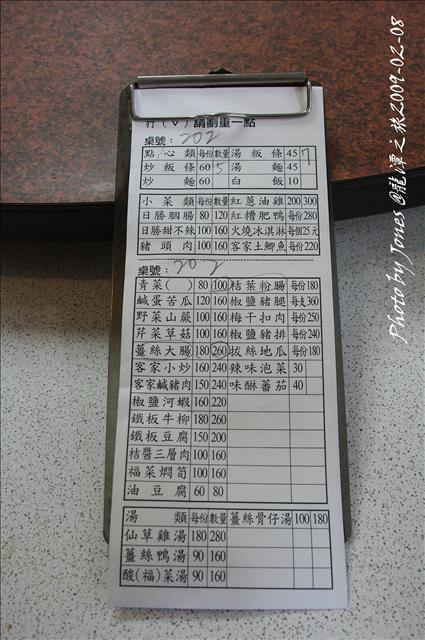 打(∨)請劃重一點
桌號：202
點心類 每份 數量 湯粄條 45 7
炒粄條 60 5 湯麵 45
炒麵 60 白飯 10
小菜類 每份 數量 紅蔥油雞 200 300
日勝胭腸 80 120 紅糟肥鴨 每份280
日勝甜不辣 100 160 火燒冰淇淋 每個25元
豬頭肉 100 160 客家土鯽魚 每份220
桌號：202
青菜( ) 80 100 秸葉粉腸 每份180
鹹蛋苦瓜 120 160 椒鹽豬腿 每支360
野菜山蕨 100 160 梅干扣肉 每份250
芹菜草菇 100 160 椒鹽豬排 每份240
薑絲大腸 180 260 拔絲地瓜 每份180
客家小炒 160 240 辣味泡菜 30
客家鹹豬肉 150 240 味醂蕃茄 40
椒鹽河蝦 160 220
鐵板牛柳 180 260
鐵板豆腐 150 200
桔醬三層肉 100 160
福菜燜筍 100 160
油豆腐 60 80
湯類 每份 數量 薑絲骨仔湯 100 180
仙草雞湯 180 280
薑絲鴨湯 90 160
酸(福)菜湯 90 160
Photo by Jones @龍潭之旅2009-02-08